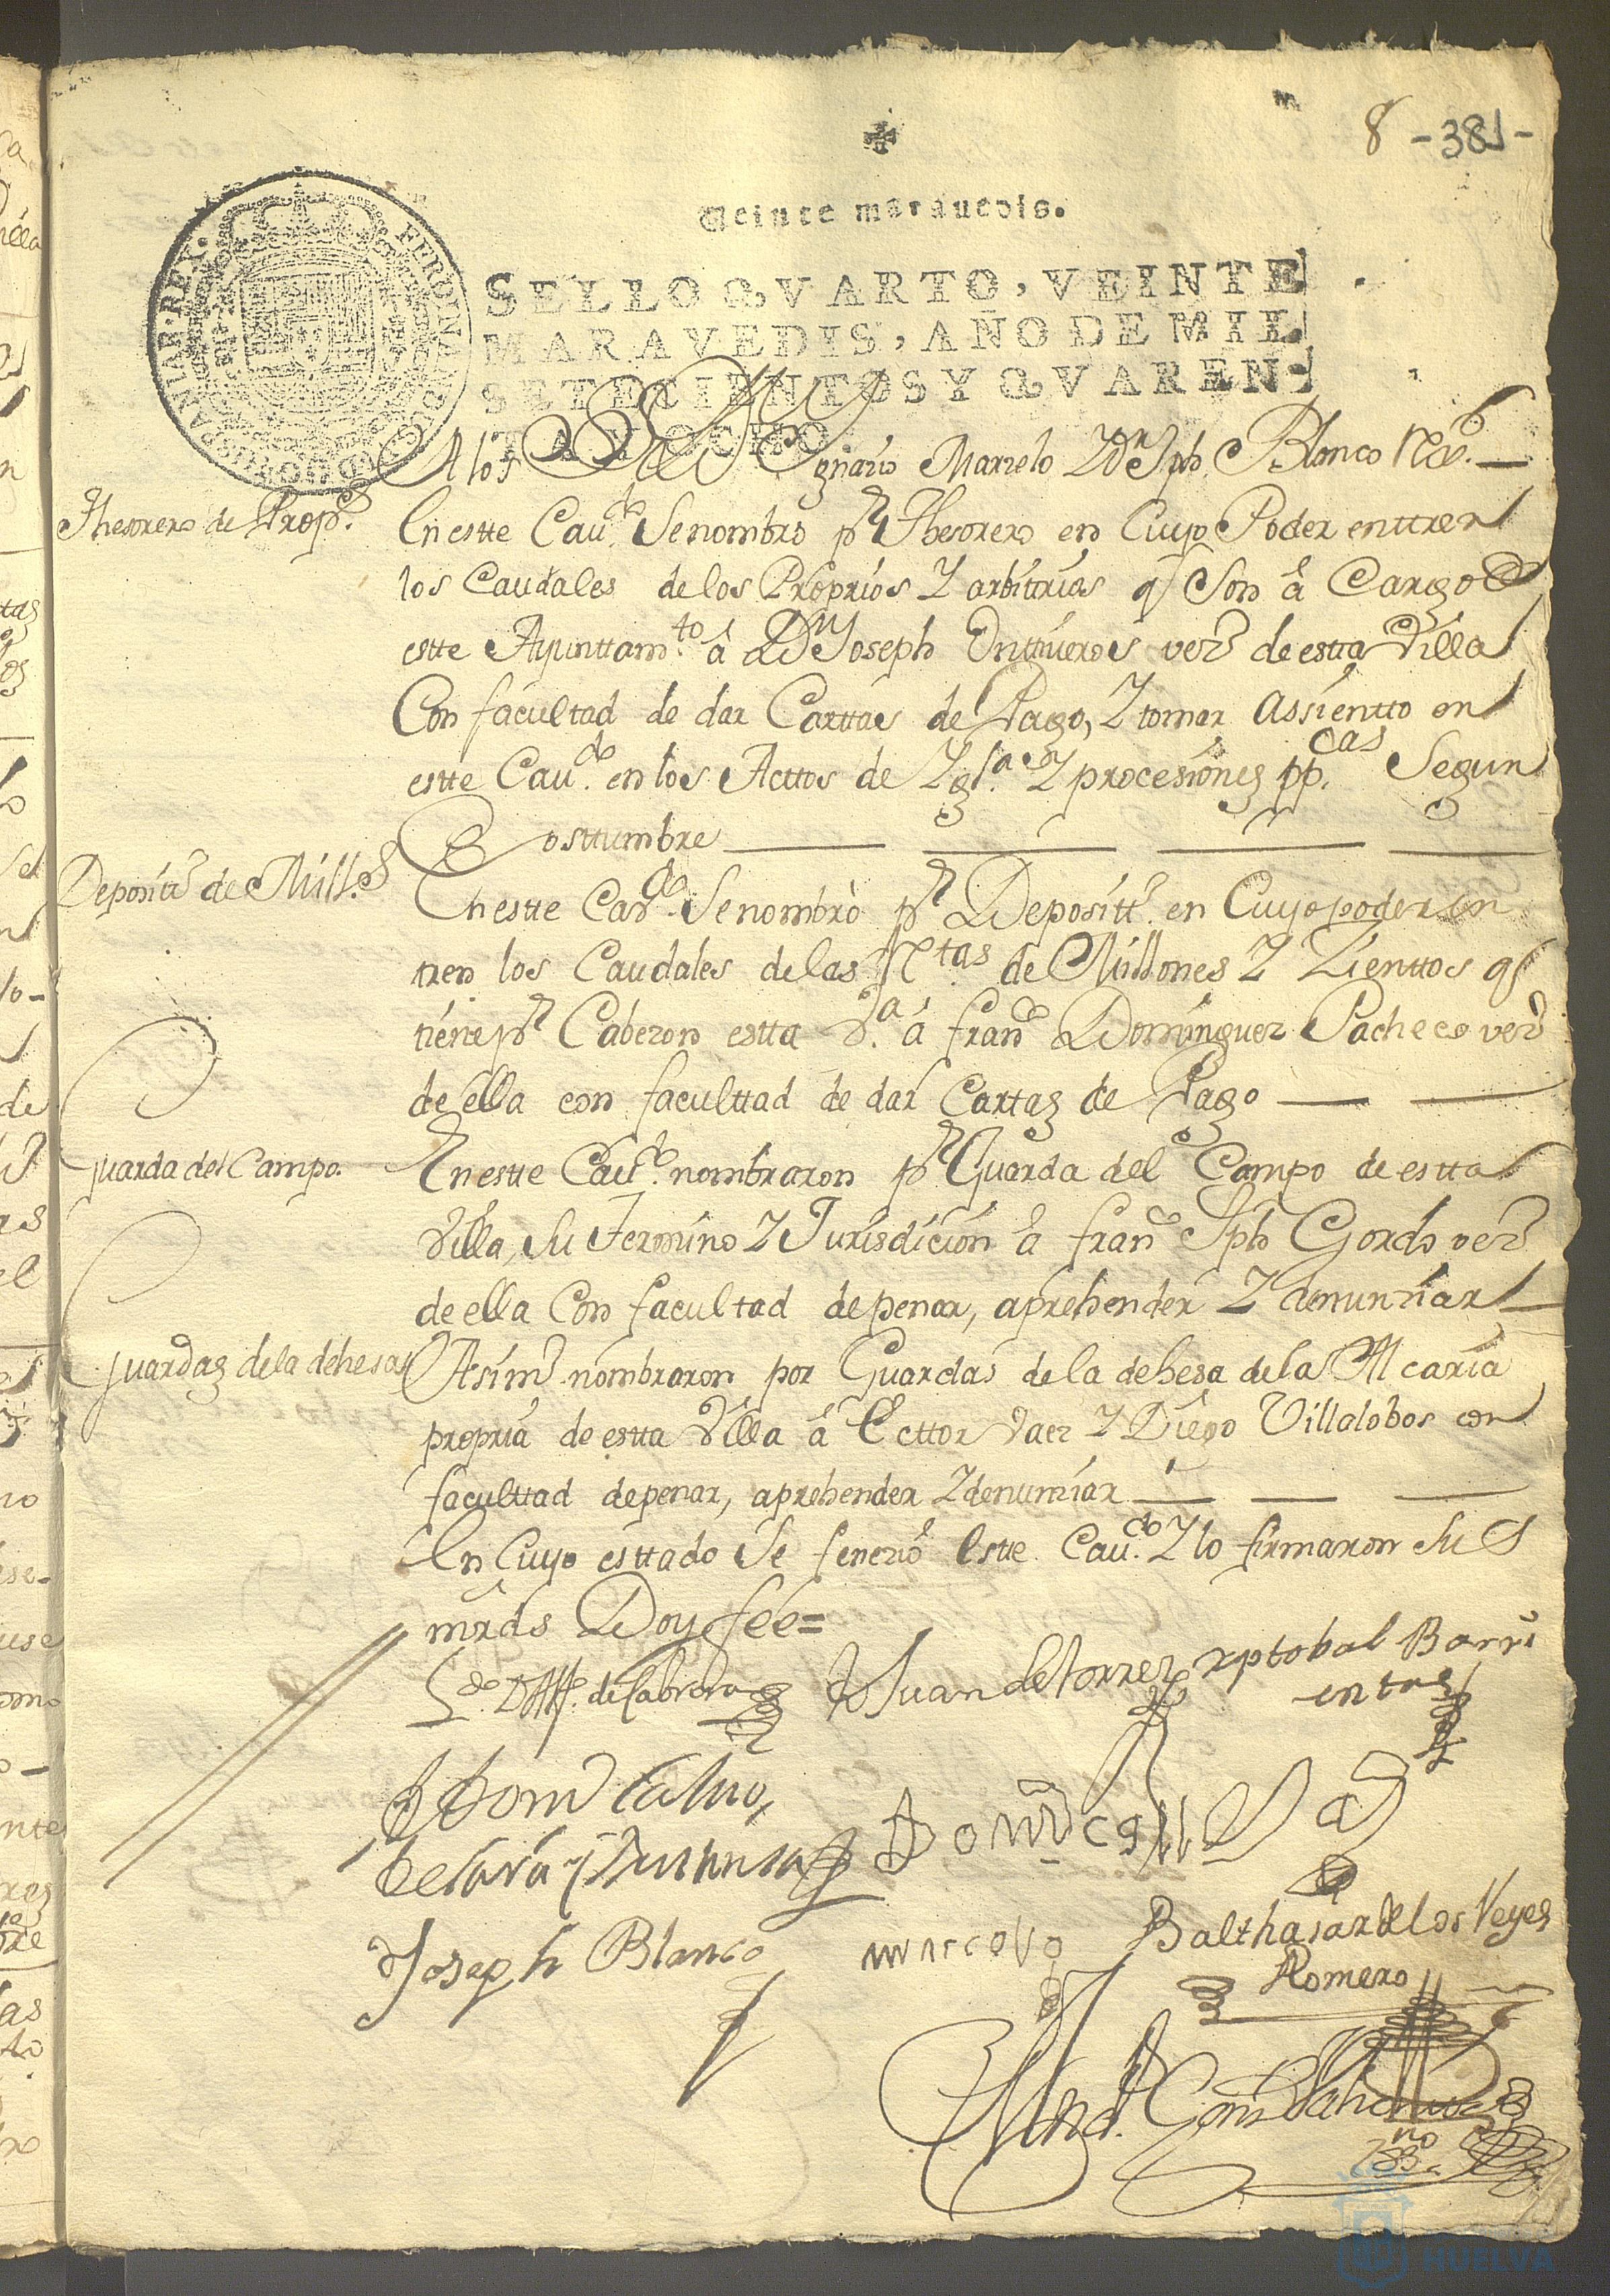 8 - 381 -
Veinte marauedis.
SELLO QVARTO, VEINTE
MARAVEDIS, AÑO DE MIL
SETECIENTOS Y QVAREN-
TA Y OCHO
A los Marzelo Y Dn Jph Blanco
Thesorero de Props.
En estte Caudo. Se nombro pr Thesorero en Cuyo Poder enttren
los Caudales de los Proprios Y arbitrios q Son â Cargo de
estte Ayunttamto. â Dn Joseph Onttiveros vezo de estta Villa
Con facultad de dar Carttas de Pago, Y tomar Assientto en
estte Caudo. en los Acttos de Yglâ. Y procesiones ppcas. Segun
Costtumbre
Depositto de Mills
En estte Cavdo. Se nombrò pr Depositto. en Cuyo poder en
tren los Caudales de las Rtas. de Millones Y Zienttos q
tiene pr Cabezon estta Va. â Franco Dominguez Pacheco vezo
de ella con facultad de dar Cartas de Pago
Guarda del Campo.
En estte Caudo. nombraron pr Guarda del Campo de estta
Villa, Su Termino Y Jurisdicion â Franco Jph Gordo vezo
de ella Con facultad de penar, aprehender Y denunziar
Guardas de la dehesa
Asimo nombraron por Guardas de la dehesa de la Alcaria
propria de estta Villa â Ecttor Vaez Y Diego Villalobos con
facultad de penar, aprehender Y denunziar
En Cuyo esttado Se fenezio estte Caudo. Y lo firmaron Sus
mrds Doy fee=
de Cabrera
Juan de torrez
xptobal Barri
entos
Domo Calvo
de Lara y
Joseph Blanco
marcelo
Balthasar de los Reyes
Romero
HUELVA